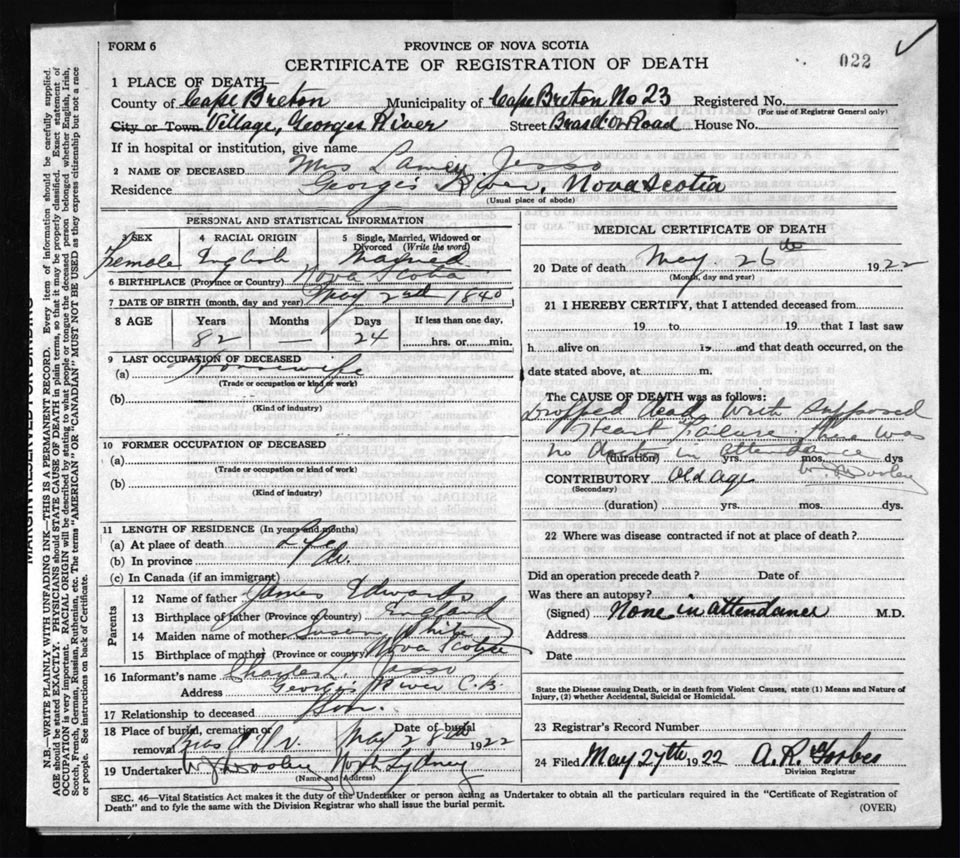 FORM 6
PROVINCE OF NOVA SCOTIA
022
CERTIFICATE OF REGISTRATION OF DEATH
1 PLACE OF DEATH—
County of Cape Breton Municipality of Cape Breton No 23 Registered No.
(For use of Registrar General only)
City or Town Village, Georges River Street Bras d'Or Road House No.
If in hospital or institution, give name
2 NAME OF DECEASED Mrs Jesso
Residence George's River, Nova Scotia
(Usual place of abode)
PERSONAL AND STATISTICAL INFORMATION
3 SEX 4 RACIAL ORIGIN 5 Single, Married, Widowed or Divorced (Write the word)
Female English Married
6 BIRTHPLACE (Province or Country) Nova Scotia
7 DATE OF BIRTH (month, day and year) May 2nd 1840
8 AGE Years Months Days If less than one day,
82 — 24 hrs. or min.
9 LAST OCCUPATION OF DECEASED
(a) Housewife
(Trade or occupation or kind of work)
(b)
(Kind of industry)
10 FORMER OCCUPATION OF DECEASED
(a)
(Trade or occupation or kind of work)
(b)
(Kind of industry)
11 LENGTH OF RESIDENCE (In years and months)
(a) At place of death Life
(b) In province Do.
(c) In Canada (if an immigrant)
Parents
12 Name of father James Edwards
13 Birthplace of father (Province or country) England
14 Maiden name of mother Susan White
15 Birthplace of mother (Province or country) Nova Scotia
16 Informant's name Charles Jesso
Address George's River C.B.
17 Relationship to deceased Son.
18 Place of burial, cremation or removal Bras d'Or Date of burial May 28th 1922
19 Undertaker W J Dooley North Sydney
(Name and Address)
MEDICAL CERTIFICATE OF DEATH
20 Date of death May 26th 1922
(Month, day and year)
21 I HEREBY CERTIFY, that I attended deceased from
19 to 19 that I last saw
h alive on 19 and that death occurred, on the
date stated above, at m.
The CAUSE OF DEATH was as follows:
Dropped dead, with supposed
Heart Failure. There was
no doctor in attendance
(duration) yrs. mos. dys
W J Dooley
CONTRIBUTORY Old Age
(Secondary)
(duration) yrs. mos. dys.
22 Where was disease contracted if not at place of death?
Did an operation precede death? Date of
Was there an autopsy?
(Signed) None in attendance M.D.
Address
Date
State the Disease causing Death, or in death from Violent Causes, state (1) Means and Nature of
Injury, (2) whether Accidental, Suicidal or Homicidal.
23 Registrar's Record Number
24 Filed May 27th 1922 A. R. Forbes
Division Registrar
SEC. 46—Vital Statistics Act makes it the duty of the Undertaker or person acting as Undertaker to obtain all the particulars required in the "Certificate of Registration of
Death" and to fyle the same with the Division Registrar who shall issue the burial permit.
(OVER)
MARGIN RESERVED FOR BINDING
N.B.—WRITE PLAINLY WITH UNFADING INK—THIS IS A PERMANENT RECORD. Every item of information should be carefully supplied.
AGE should be stated EXACTLY. PHYSICIANS should STATE CAUSE OF DEATH in plain terms, so that it may be properly classified. Exact statement of
OCCUPATION is very important. RACIAL ORIGIN will be described by stating to what people or tongue the deceased person belonged whether English, Irish,
Scotch, French, German, Russian, Ruthenian, etc. The terms "AMERICAN" OR "CANADIAN" MUST NOT BE USED as they express citizenship but not a race
or people. See instructions on back of Certificate.